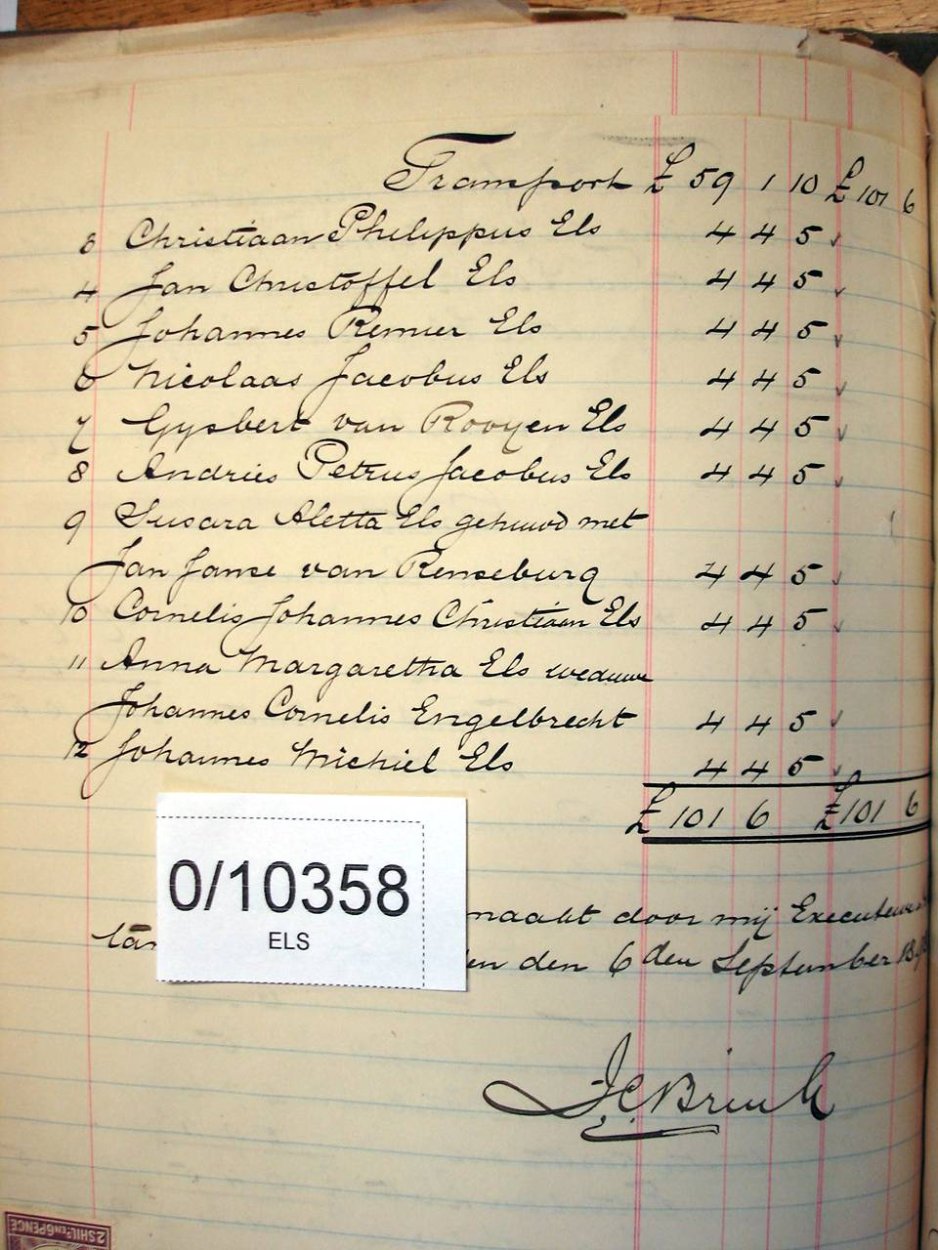 Transport £ 59 1 10 £ 101 6
3 Christiaan Philippus Els 4 4 5
4 Jan Christoffel Els 4 4 5
5 Johannes Renier Els 4 4 5
6 Nicolaas Jacobus Els 4 4 5
7 Gysbert van Rooyen Els 4 4 5
8 Andries Petrus Jacobus Els 4 4 5
9 Susara Aletta Els gehuwd met
Jan Janse van Renseburg 4 4 5
10 Cornelis Johannes Christiaan Els 4 4 5
11 Anna Margaretha Els weduwe
Johannes Cornelis Engelbrecht 4 4 5
12 Johannes Michiel Els 4 4 5
£ 101 6 £ 101 6
0/10358
ELS
maakt door mij
en den 6 den September
J.C. Brink
2 SHILS EN 6 PENCE